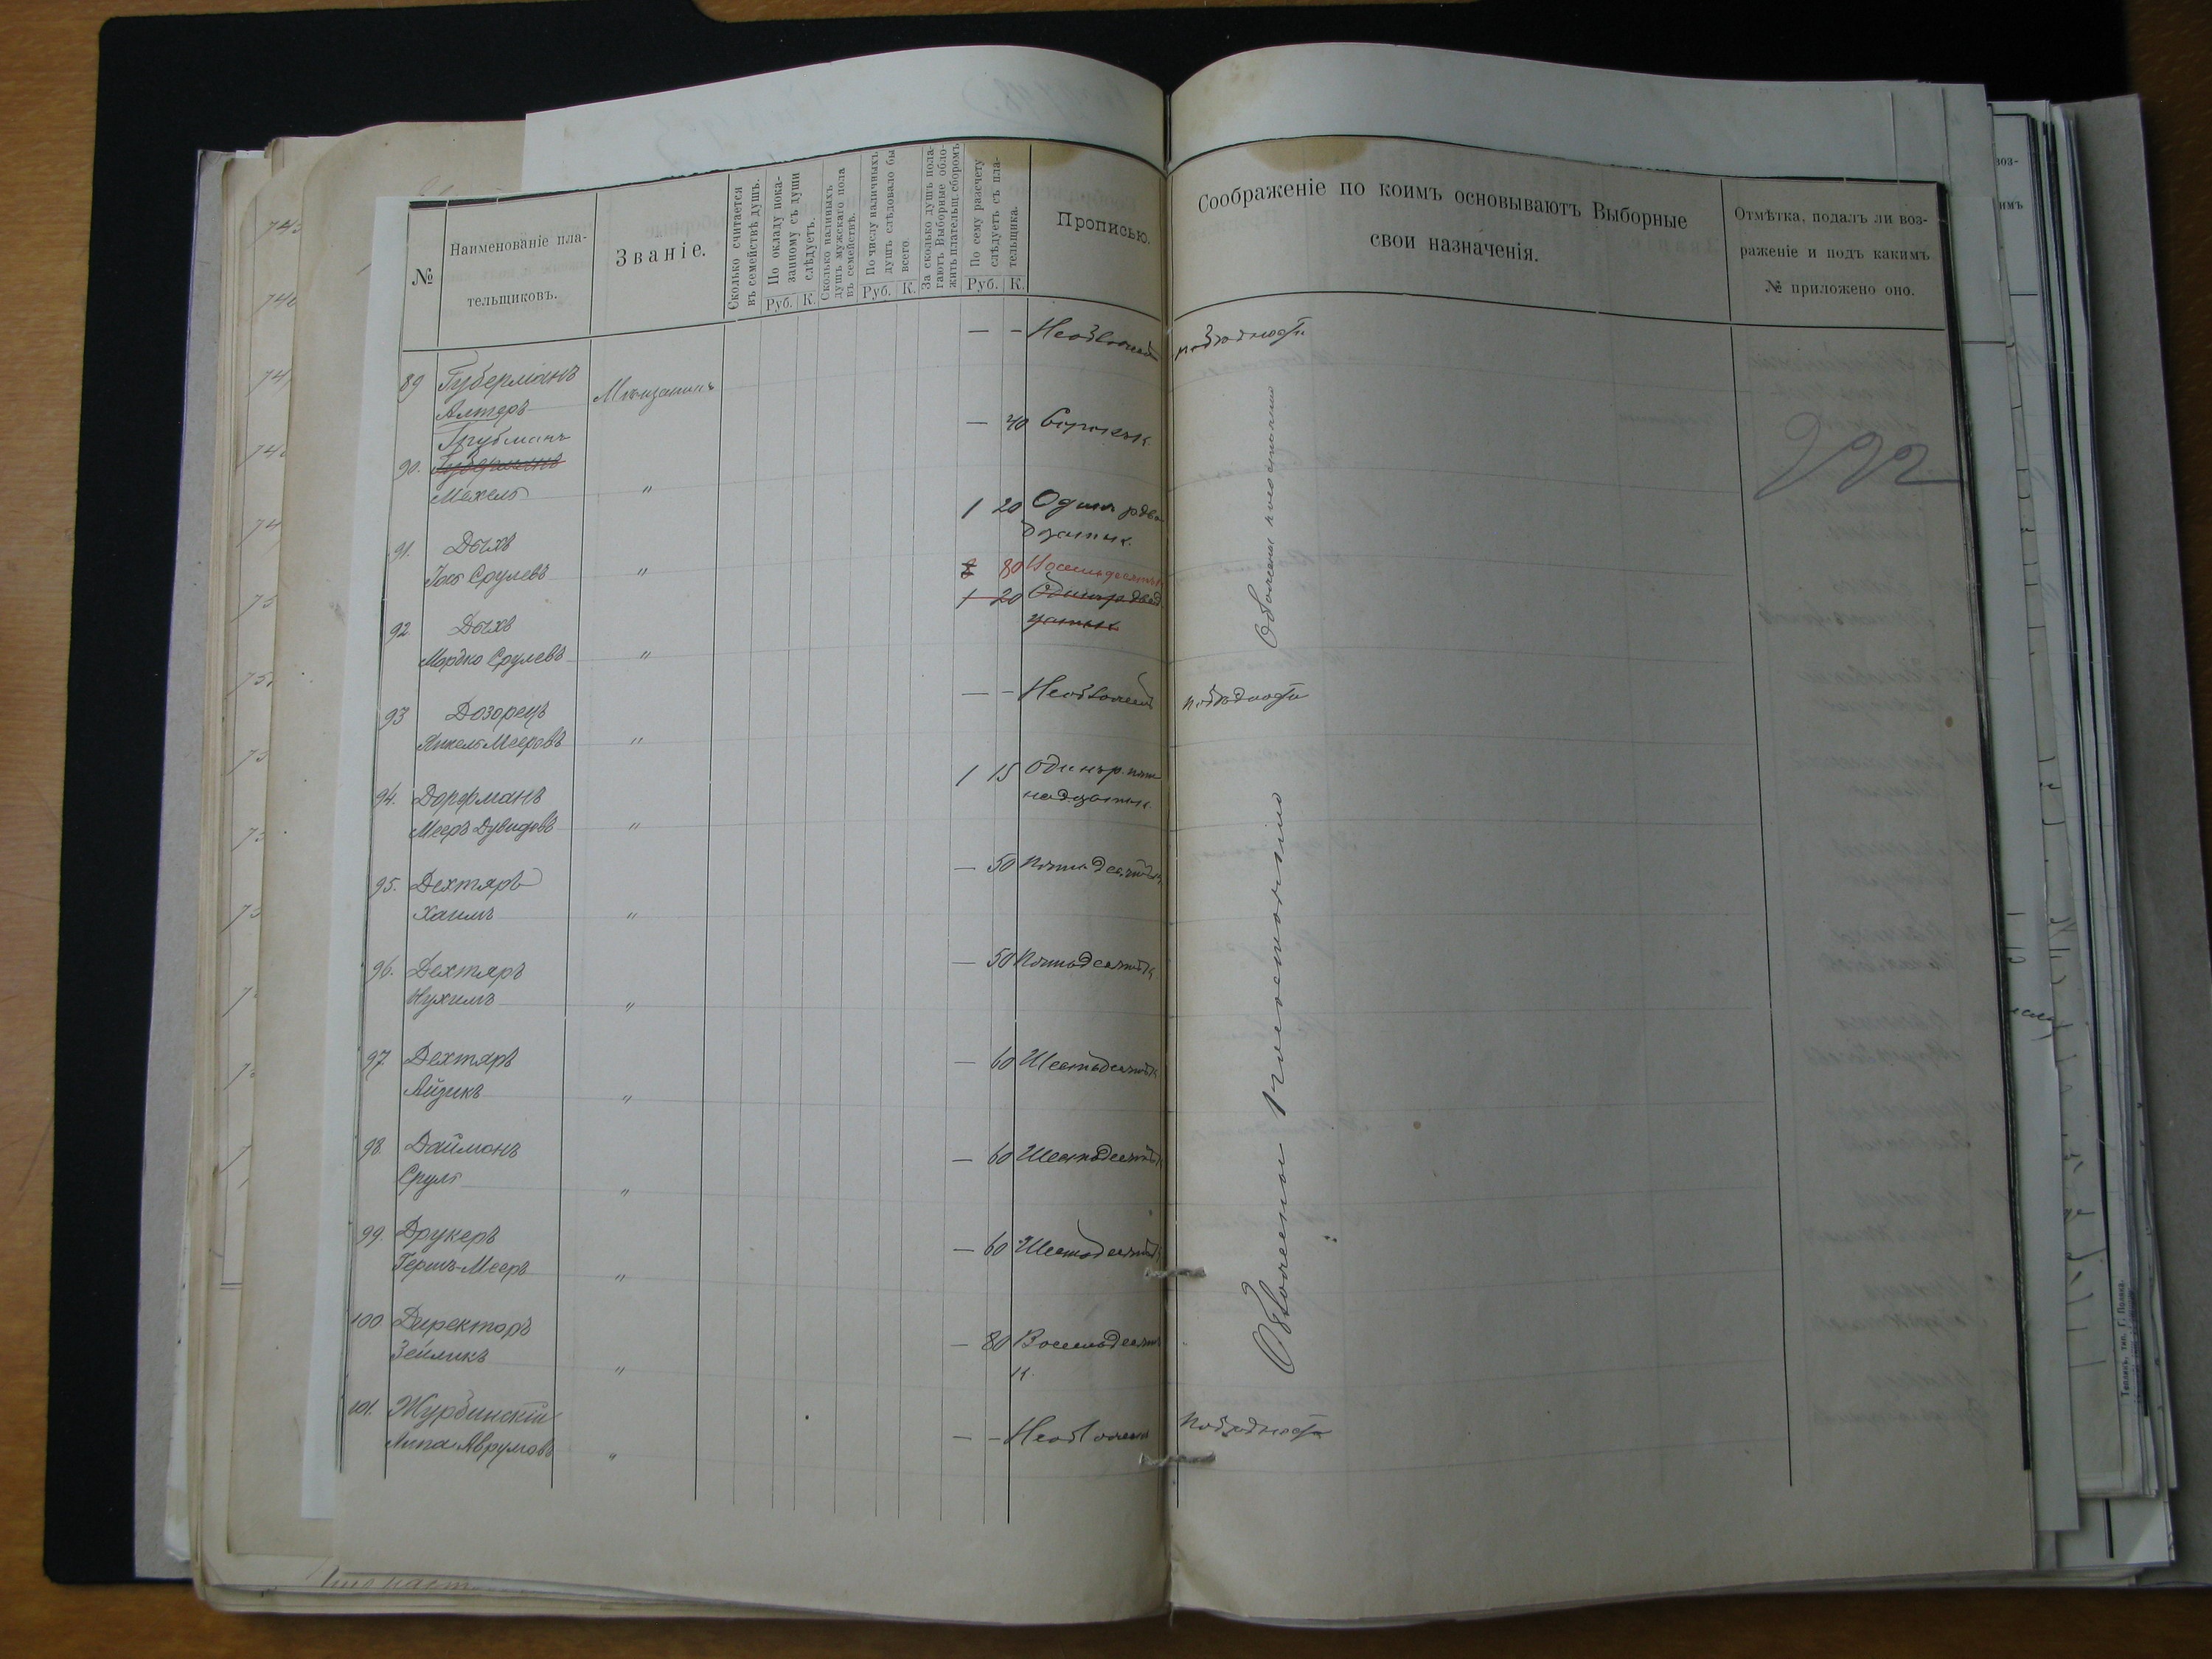 №
Наименованіе пла-
тельщиковъ.
Званіе.
Сколько считается
въ семействѣ душъ.
По окладу пока-
занному съ души
слѣдуетъ.
Руб. К.
Сколько наличныхъ
душъ мужскаго пола
въ семействѣ.
По числу наличныхъ
душъ слѣдовало бы
всего.
Руб. К.
За сколько душъ пола-
гаютъ Выборные обло-
жить плательщ. сборомъ
По сему разсчету
слѣдуетъ съ пла-
тельщика.
Руб. К.
Прописью.
Соображеніе по коимъ основываютъ Выборные
свои назначенія.
Отмѣтка, подалъ ли воз-
раженіе и подъ какимъ
№ приложено оно.
— — Необложенъ по бѣдности
89 Губерманъ
Алтеръ Мѣщанинъ
— 40 Сорок к.
Грубманъ
90. Губерманъ
Мехель "
1 20 Одинъ р два
дцать к.
91. Дыхъ
Іось Срулевъ "
80 Восемьдесятъ к
1 20 Одинъ р двад
цать к
92 Дыхъ
Мордко Срулевъ "
— — Необложенъ по бѣдности
93 Дозорецъ
Янкель Мееровъ "
1 15 Одинъ р. пят
надцать к.
94. Дорфманъ
Мееръ Дувидовъ "
— 50 Пятьдесятъ к
95. Дехтяръ
Хаимъ "
— 50 Пятьдесятъ к
96. Дехтяръ
Нухимъ "
— 60 Шестьдесятъ к
97 Дехтяръ
Айзикъ "
— 60 Шестьдесятъ к
98. Даймонъ
Сруль "
— 60 Шестьдесятъ к
99. Друкеръ
Гершъ-Мееръ "
— 80 Восемьдесят
к.
100 Директоръ
Зейликъ "
— — Необложенъ по бѣдности
101. Журбинскій
Липа Аврумовъ "
Обложены по состоянію
Обложены по состоянію
292